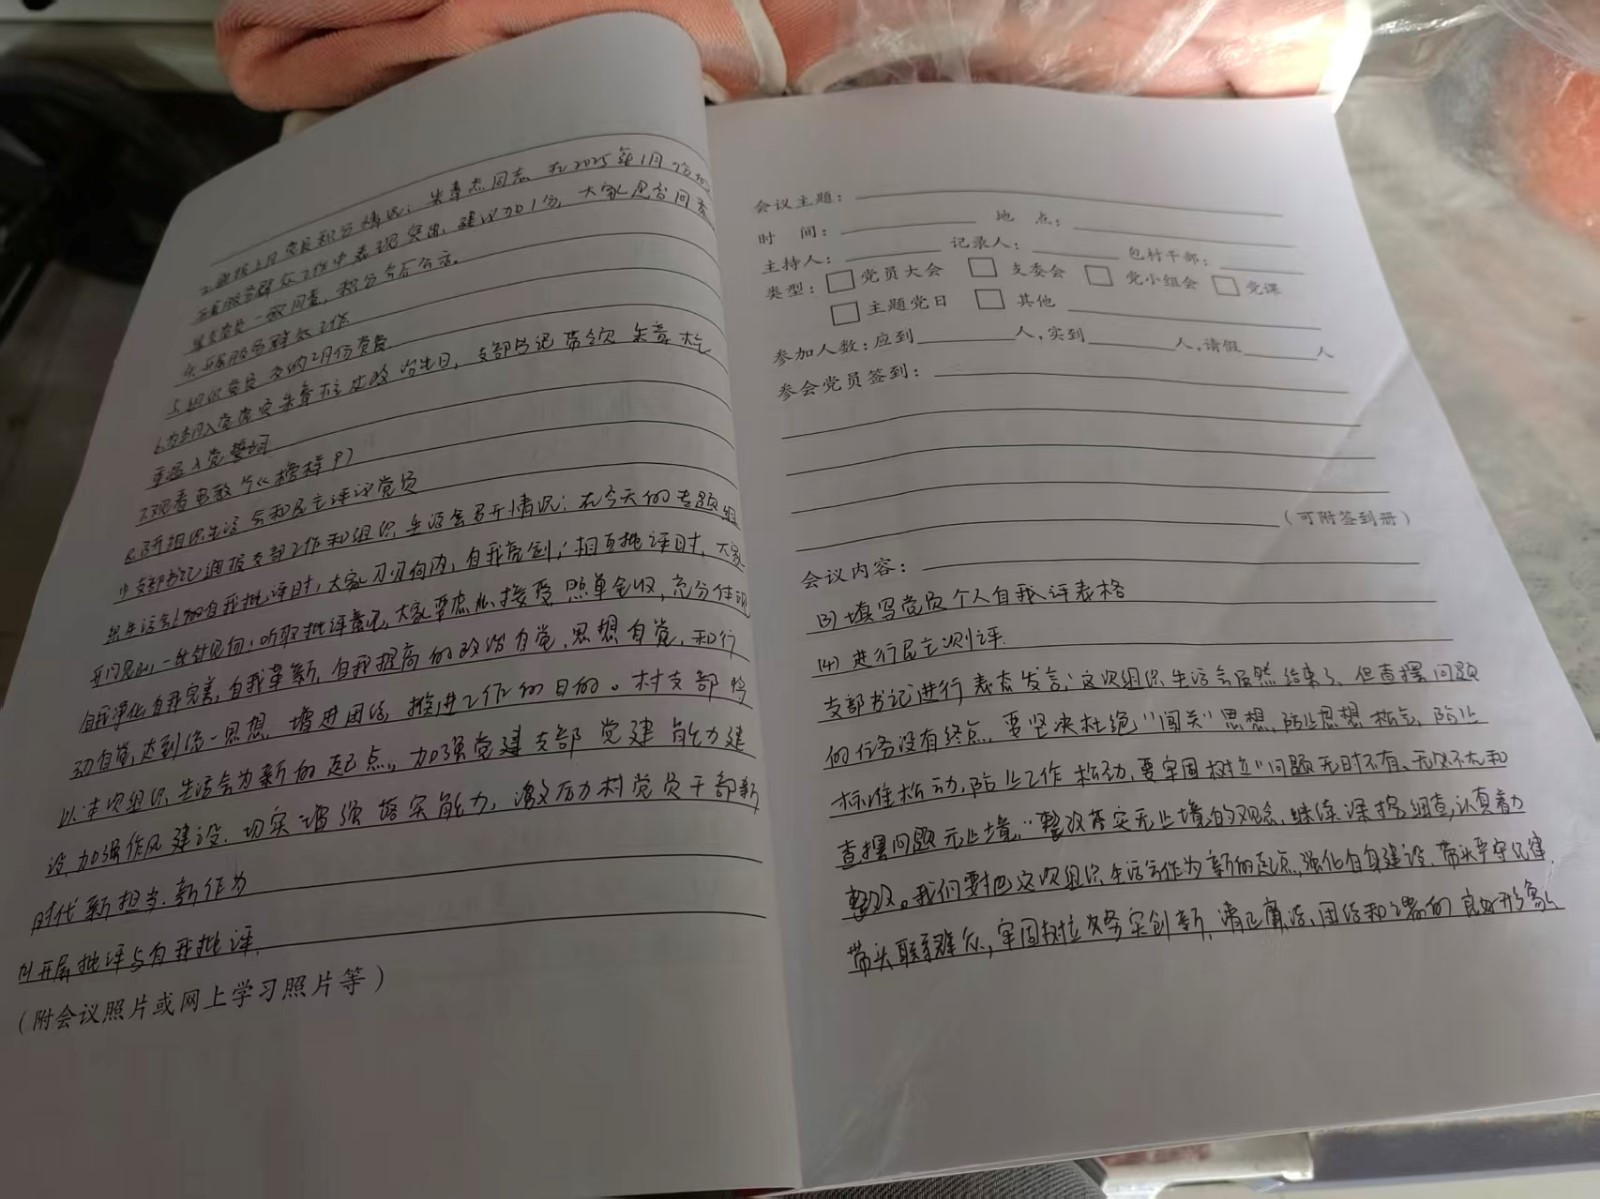 2.通报上月党员积分情况：朱 同志 在2025年1月份的
开展服务群众工作中表现突出，建议加1分，大家是否同意
一致同意，积分 公示。
4.开展服务群众工作
5.组织党员交纳2月份党费
6.为 入党 党员朱 过政治生日，支部书记带领朱
重温入党誓词
7.观看电教片《榜样9》
8.召开组织生活会和民主评议党员
(1)支部书记通报支部工作和组织生活会召开情况：在今天的专题组
织生活会上 自我批评时，大家刀刃向内，自我 ；相互批评时，大家
开门见山，一针见血；听取批评意见，大家要虚心接受，照单全收，充分体现
自我净化、自我完善、自我革新、自我提高的政治自觉、思想自觉、和行
动自觉，达到统一思想、增进团结、推进工作的目的。村支部将
以本次组织生活会为新的起点，加强党建支部党建能力建
设，加强作风建设，切实增强落实能力，激励村党员干部新
时代新担当、新作为
(2)开展批评与自我批评.
（附会议照片或网上学习照片等）
会议主题：
时 间： 地 点：
主持人： 记录人： 包村干部：
类型：□党员大会 □支委会 □党小组会 □党课
□主题党日 □其他
参加人数：应到 人，实到 人，请假 人
参会党员签到：
（可附签到册）
会议内容：
(3)填写党员个人自我评表格
(4)进行民主测评.
支部书记进行表态发言：这次组织生活会虽然结束了，但查摆问题
的任务没有终点，要坚决杜绝“闯关”思想，防止思想松 ，防止
标准松动，防止工作松动，要牢固树立“问题无时不有、无处不在和
查摆问题无止境，”整改落实无止境的观念，继续深挖细查，认真着力
整改。我们要把这次组织生活会作为新的起点，强化自身建设，带头严守纪律，
带头联系群众，牢固树立 务实创新、清正廉洁、团结和谐的良好形象。